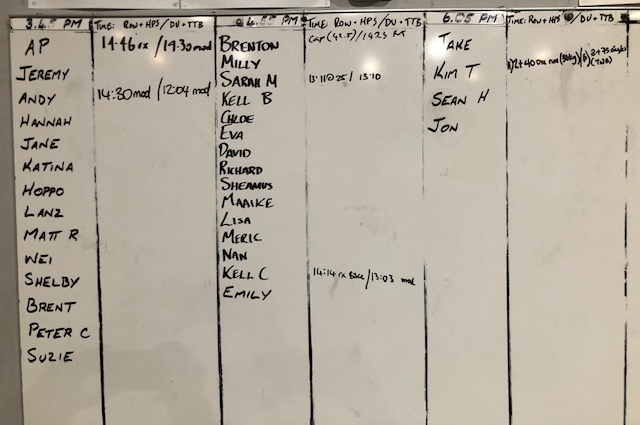 3.45 PM TIME: ROW+HPS/DU+TTB
AP 14:46 rx / 14:30 mod
JEREMY
ANDY 14:30 mod / 12:04 mod
HANNAH
JANE
KATINA
HOPPO
LANZ
MATT R
WEI
SHELBY
BRENT
PETER C
SUZIE
4.55 PM TIME: ROW+HPS/DU+TTB
BRENTON CAP (42.5) / 1423 RX
MILLY
SARAH M 13:11@25 / 13:10
KELL B
CHLOE
EVA
DAVID
RICHARD
SHEAMUS
MAAIKE
LISA
MERIC
NAN
KELL C 14:14 rx / 13:03 mod
EMILY
6.05 PM TIME: ROW+HPS /DU+TTB
TAKE
KIM T
SEAN H
JON